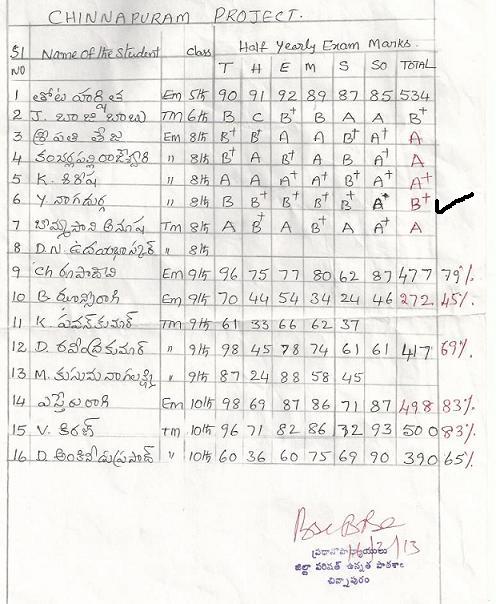 CHINNAPURAM PROJECT.
Half Yearly Exam Marks.
Sl NO Name of the Student class T H E M S So TOTAL
1 తోట హర్షిత Em 5th 90 91 92 89 87 85 534
2 J. బాజి బాబు TM 6th B C B+ B A A B+
3 శ్రీపతి తేజ Em 8th B+ B+ A A B+ A+ A
4 రాజేశ్వరి " 8th B+ A B+ A B A+ A
5 K. శిరీష " 8th A A A+ A B+ A+ A+
6 Y నాగదుర్గ " 8th B B+ B B+ B+ A+ B+
7 అనూష Tm 8th A B+ A B+ A A A
8 D.N. ఉదయభాస్కర్ " 8th
9 Ch రూపాదేవి Em 9th 96 75 77 80 62 87 477 79%
10 B. ఝాన్సీరాణి Em 9th 70 44 54 34 24 46 272 45%
11 K. పవన్ కుమార్ TM 9th 61 33 66 62 37
12 D. రవీంద్రకుమార్ " 9th 98 45 78 74 61 61 417 69%
13 M. కుసుమ నాగలక్ష్మి " 9th 87 24 88 58 45
14 ఎస్తేరురాణి Em 10th 98 69 87 86 71 87 498 83%
15 V. కిరణ్ Tm 10th 96 71 82 86 72 93 500 83%
16 D. అంకినీడుప్రసాద్ " 10th 60 36 60 75 69 90 390 65%
ప్రధానోపాధ్యాయులు
జిల్లా పరిషత్ ఉన్నత పాఠశాల
చిన్నాపురం